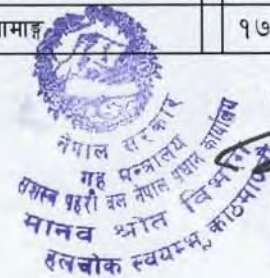 मामाङ्ग १७
नेपाल सरकार
गृह मन्त्रालय
सशस्त्र प्रहरी बल नेपाल प्रधान कार्यालय
मानव श्रोत विभाग
हलचोक स्वयम्भू, काठमाण्डौ